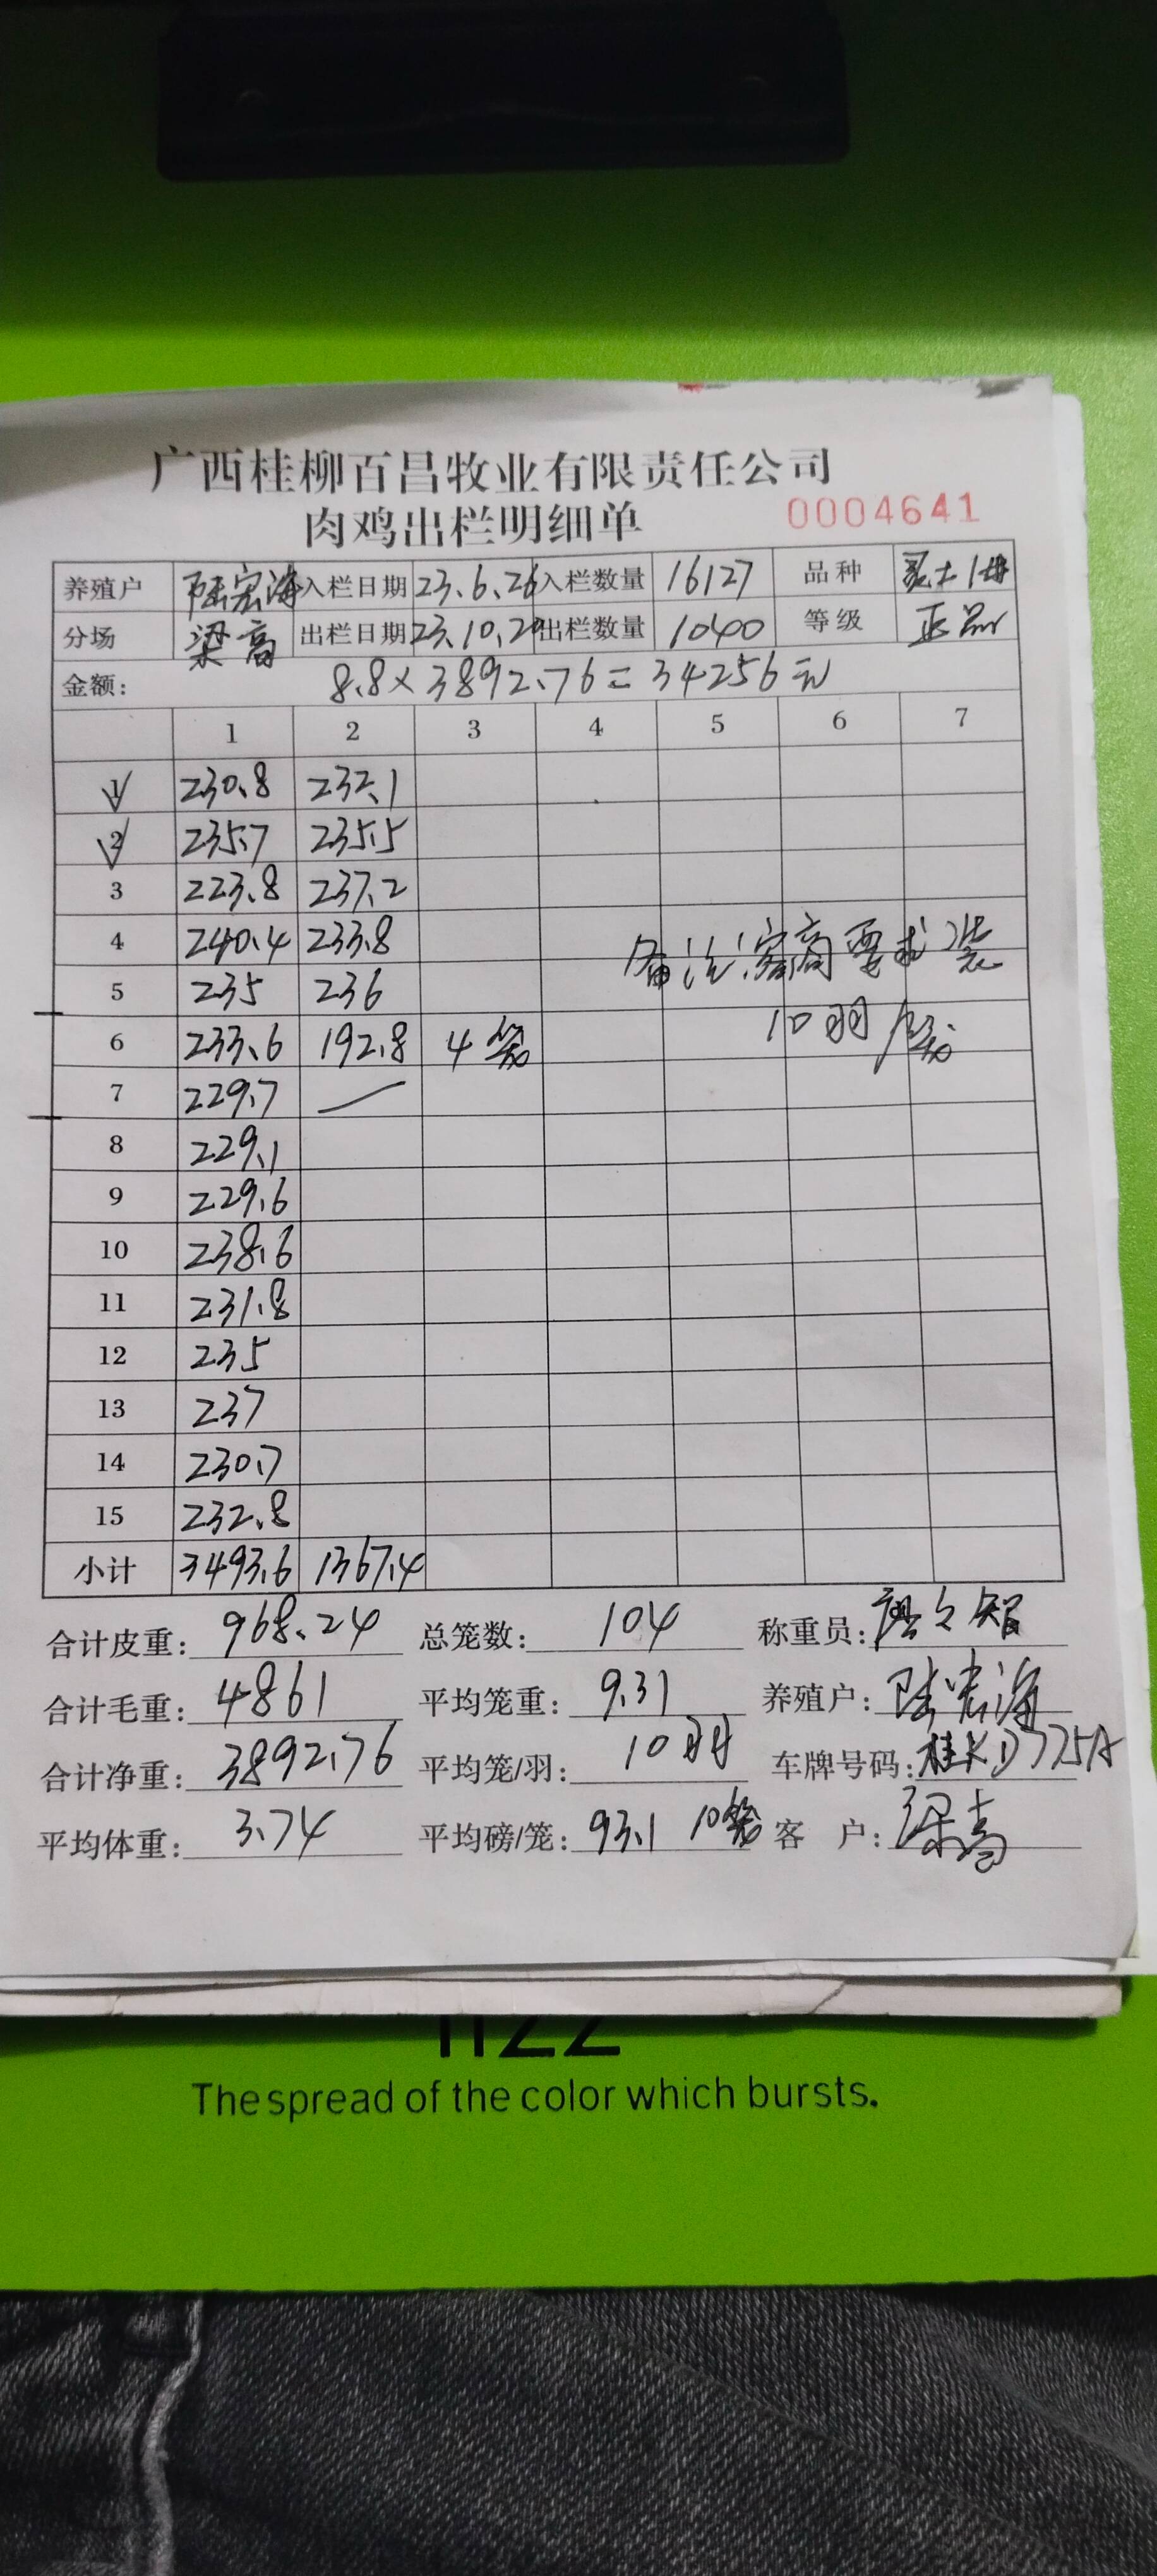 广西桂柳百昌牧业有限责任公司
肉鸡出栏明细单 0004641
养殖户 陆宏海 入栏日期 23.6.26 入栏数量 16127 品种
分场 梁高 出栏日期 23.10.20 出栏数量 1040 等级 正品
金额: 8.8×3892.76=34256元
1 2 3 4 5 6 7
1 230.8 232.1
2 235.7 235.5
3 223.8 237.2
4 240.4 233.8
备注:客商要求装
5 235 236
10羽/笼
6 233.6 192.8 4笼
7 229.7 —
8 229.1
9 229.6
10 238.6
11 231.8
12 235
13 237
14 230.7
15 232.8
小计 3493.6 1367.4
合计皮重: 968.24 总笼数: 104 称重员:
合计毛重: 4861 平均笼重: 9.31 养殖户: 陆宏海
合计净重: 3892.76 平均笼/羽: 10羽 车牌号码: 桂KD775A
平均体重: 3.74 平均磅/笼: 93.1 10笼 客 户: 梁高
The spread of the color which bursts.